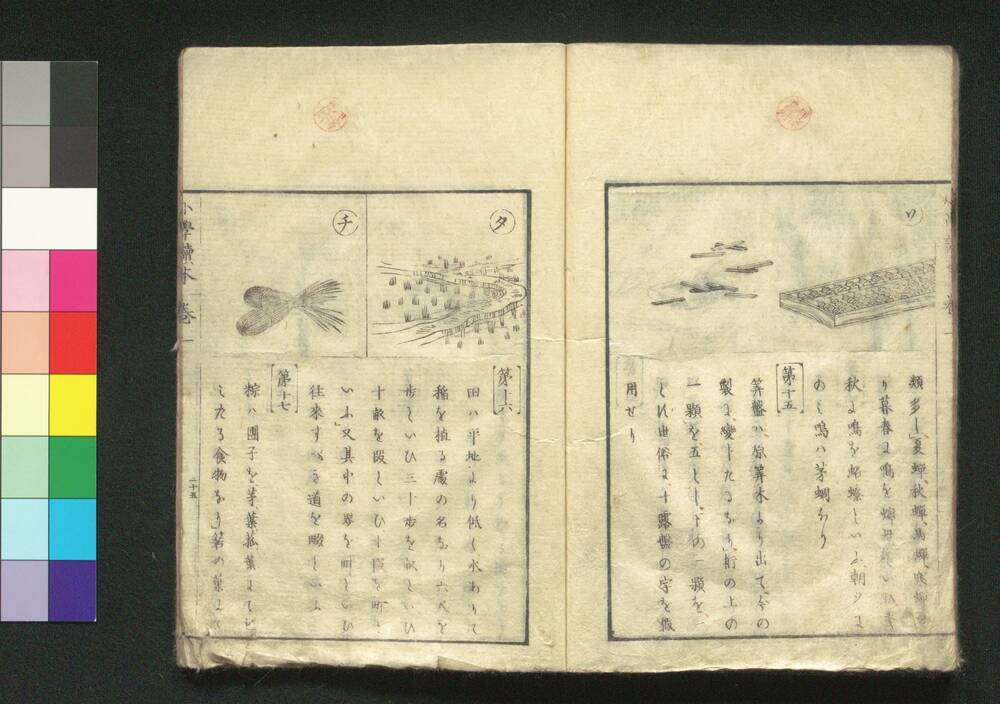 ソ
類多し夏蟬秋蟬馬蜩寒蟬
り暮春に鳴を
秋に鳴を蟪蛄といふ朝夕に
のミ鳴ハ茅蜩なり
第十五
筭盤ハ原筭木より出て今の
製に變したるなり桁の上の
一顆を五とし下の一顆を一
とす世俗に十露盤の字を假
用せり
タ
第十六
田ハ平地より低く水ありて
稲を植る處の名なり六尺を
歩といひ三十歩を畝といひ
十畝を段といひ十段を町と
いふ又其中の界を畔といひ
往來すべき道を畷といふ
チ
第十七
粽ハ團子を茅葉菰葉にて包
ミたる食物なり笹の葉にて
小學讀本 巻一
二十五